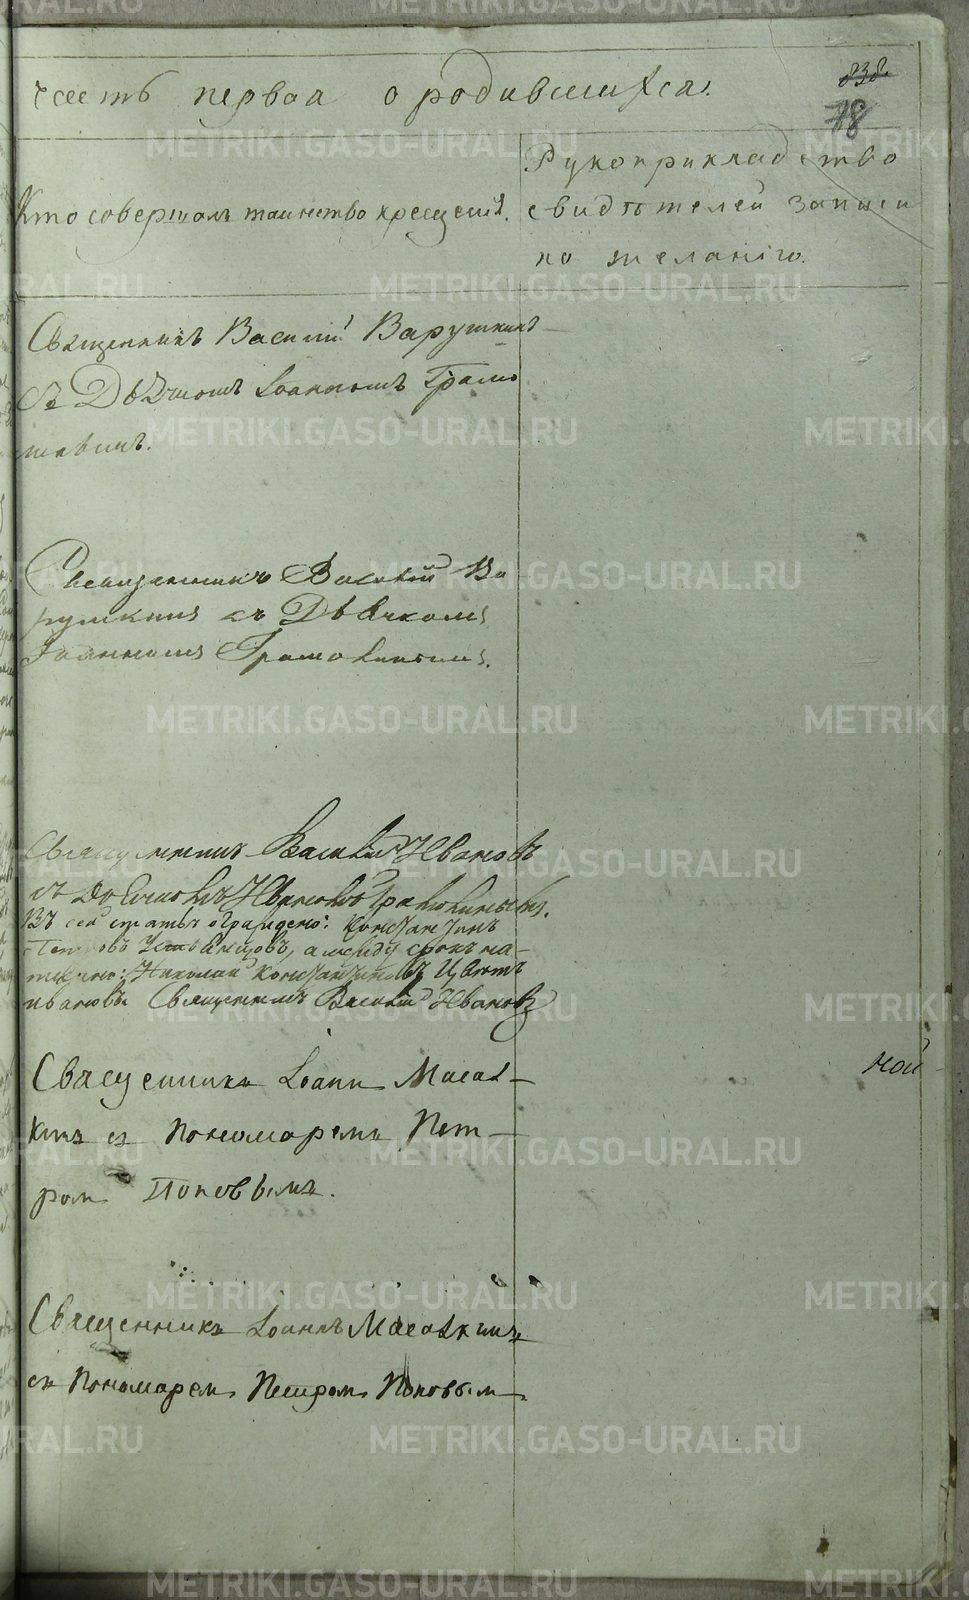 часть первая о родившихся.
838
78
Кто совершалъ таинство крещенія.
Рукоприкладство
свидѣтелей записи
по желанію.
Священникъ Василій Варушкинъ
съ Дьячкомъ Іоанномъ Грамо
Священникъ Василій Ва
рушкинъ съ Дьячкомъ
Іоанномъ Грамолинымъ.
Священникъ Василій Ивановъ
съ Ивановъ
Въ сей статьѣ Константинъ
Петровъ а между строкъ на
Николай Константиновъ
ивановъ Священникъ Василій Ивановъ
Священникъ Іоаннъ Масал
кинъ съ Пономаремъ Пет
ромъ Поповымъ.
ной
Священникъ Іоаннъ Масалкинъ
съ Пономаремъ Петромъ Поповымъ
METRIKI.GASO-URAL.RU